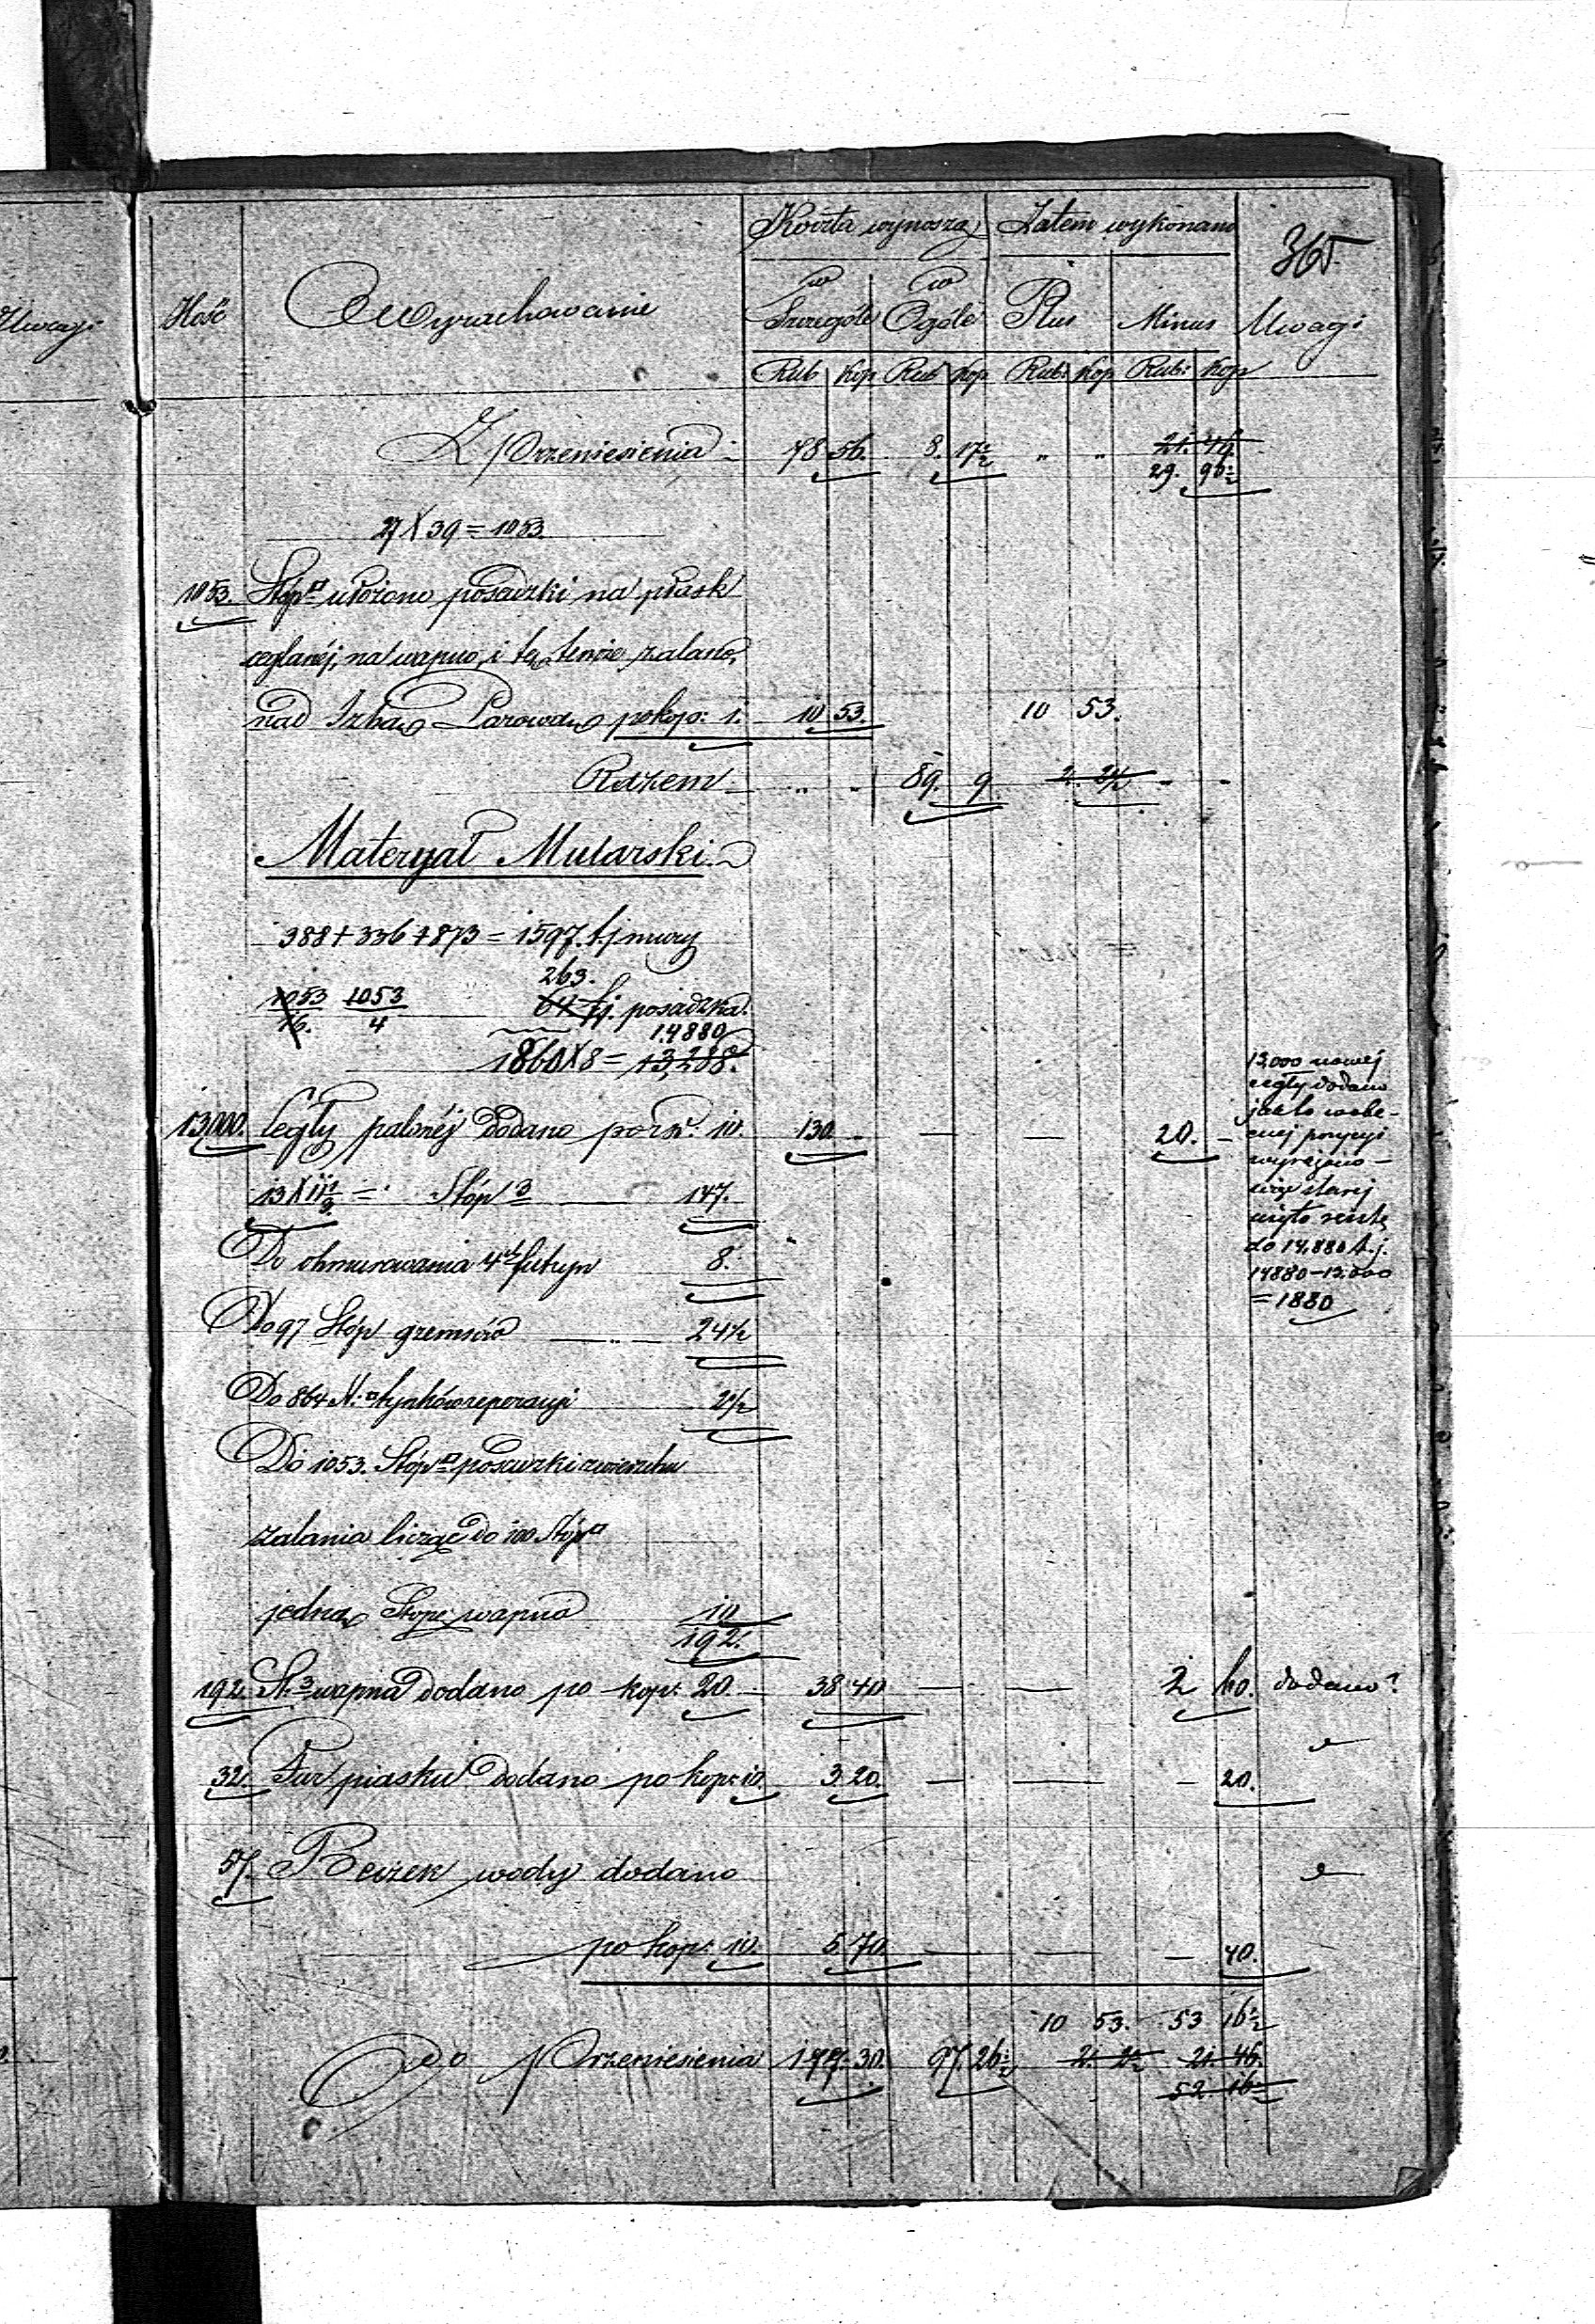 Koszta wynoszą Zatem wykonano
365
w w
Ilość Obwyrachowanie Szczególe Ogóle Plus Minus Uwagi
Uwagi
Rub kop Rub kop Rub: kop Rub: kop
Z Przeniesienia 78 56. 8. 17½ " " 21. 46.
29. 96½
27 X 39 = 1053.
1053. Stóp□ ułożono posadzki na płask
ceglanéj, na wapno, i tą temże zalano,
nad Izbą Parową po kop: 1. 10 53. 10 53.
Razem " " 89. 9. 2. 24½ - -
Materyał Mularski
388 + 336 + 873 = 1597. t.j mury
263.
1053/16. 1053/4 64 t.j. posadzka.
14880
1860 X 8 = 13,288.
13,000. Cegły palonéj dodano po rs. 10. 130. - — — 20. -
13,000 nowej
cegły dodano
jak to w obe-
cnej pozycyi
-
więc starej
użyto resztę
do 14,880 t.j.
14880 - 13.000
= 1880
13 X 11⅓ = Stóp 3 147.
Do obmurowania 4ch futryn 8.
Do 97 Stóp gzemsów " 24½
Do 864 St.□ tynków reperacyi 2½
Do 1053. Stóp□ posadzki z wierzchu
zalania licząc do 100 Stóp□
jedną Stopę wapna 10
192.
192. St.3 wapna dodano po kop: 20. 38 40 — — 2 60. dodano?
32. Fur piasku dodano po kop: 10. 3. 20. — — — 20.
57. Beczek wody dodano
po kop: 10. 5. 70. — — — 40.
10 53. 53 16½
Do Przeniesienia 177. 30. 97. 26½ 2. 2½ 21. 46.
52 16½